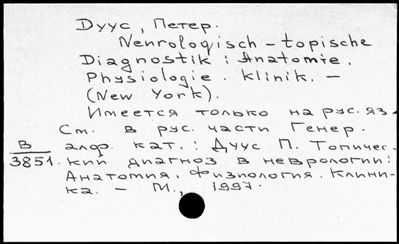 Дуус, Петер.
Nenrologisch - topische
Diagnostik : Anatomie.
Physiologie. Klinik. -
(New York).
Имеется только на рус. яз.
См. в рус. части Генер.
В
3851
алф. кат.: Дуус П. Топичес-
кий диагноз в неврологии:
Анатомия. Физиология. Клини-
ка. - М., 1997.